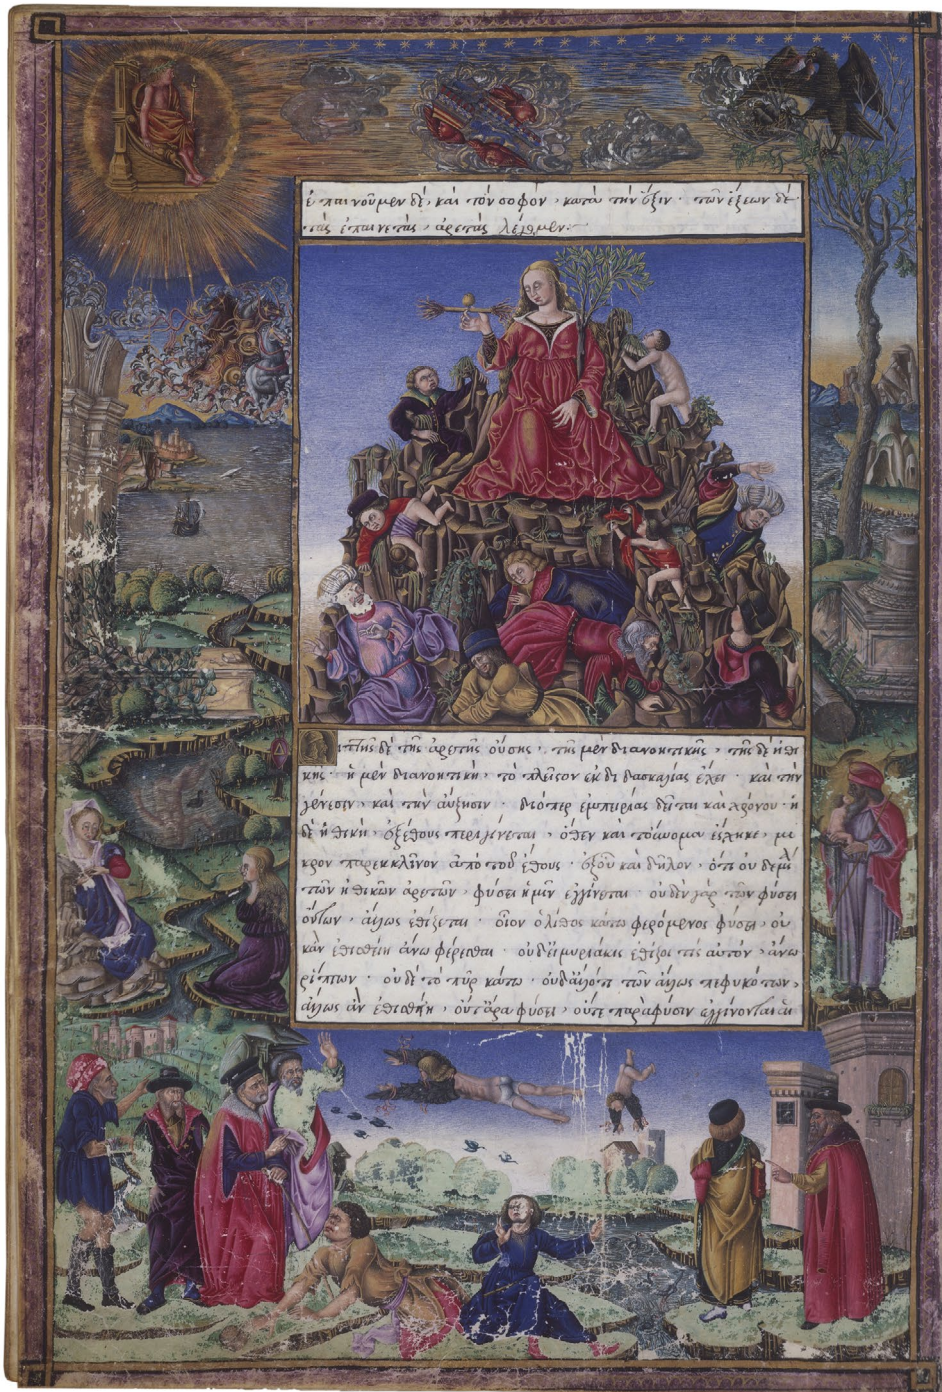 ἐπαινοῦμεν δὲ, καὶ τὸν σοφὸν, κατὰ τὴν ἕξιν· τῶν ἕξεων δὲ
τὰς ἐπαινετὰς, ἀρετὰς λέγομεν:
ιττῆς δὲ τῆς ἀρετῆς οὔσης· τῆς μὲν διανοητικῆς, τῆς δὲ ἠθι
κῆς· ἡ μὲν διανοητικὴ, τὸ πλεῖστον ἐκ διδασκαλίας ἔχει· καὶ τὴν
γένεσιν, καὶ τὴν αὔξησιν· διόπερ ἐμπειρίας δεῖται καὶ χρόνου· ἡ
δὲ ἠθικὴ, ἐξ ἔθους περιγίνεται, ὅθεν καὶ τοὔνομα ἔσχηκε, μι
κρὸν παρεκκλῖνον ἀπὸ τοῦ ἔθους· ἐξ οὗ καὶ δῆλον, ὅτι οὐδεμία
τῶν ἠθικῶν ἀρετῶν, φύσει ἡμῖν ἐγγίνεται· οὐδὲν γὰρ τῶν φύσει
ὄντων, ἄλλως ἐθίζεται· οἷον ὁ λίθος κάτω φερόμενος φύσει, οὐ
κ ἂν ἐθισθείη ἄνω φέρεσθαι· οὐδ' εἰ μυριάκις ἐθίζοι τις αὐτὸν, ἄνω
ρίπτων· οὐδὲ τὸ πῦρ κάτω· οὐδ' ἄλλό τι τῶν ἄλλως πεφυκότων,
ἄλλως ἂν ἐθισθείη, οὔτ' ἄρα φύσει, οὔτε παρὰ φύσιν ἐγγίνονται αἱ